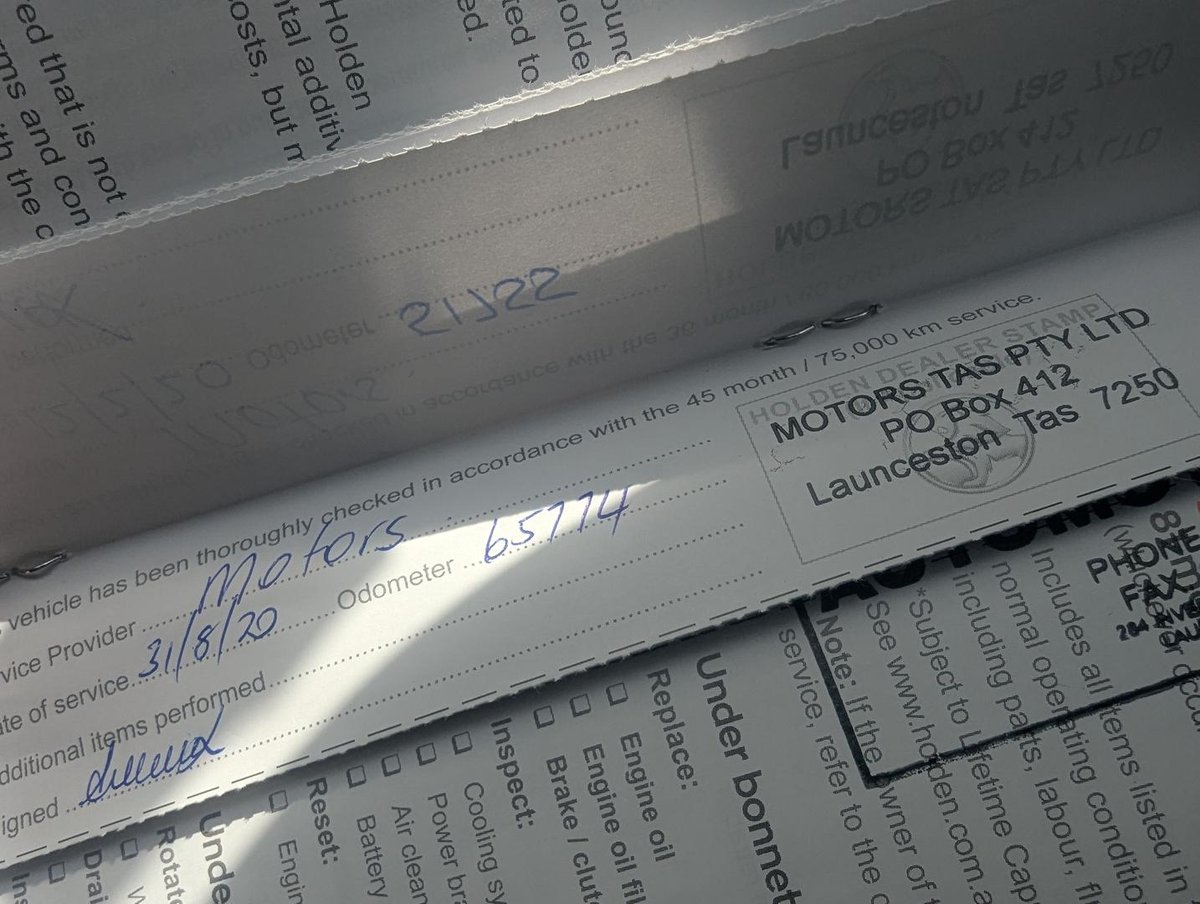 ed that is not
rms and con
ith the c
Holden
ntal additiv
osts, but m
ound
olde
ted to
ed.
MOTORS TAS PTY LTD
PO Box 412
Launceston Tas 7250
Odometer 21722
in accordance with the 30 month
vehicle has been thoroughly checked in accordance with the 45 month / 75,000 km service.
vice Provider Motors
ate of service 31/8/20 Odometer 65774
dditional items performed
igned
HOLDEN DEALER STAMP
MOTORS TAS PTY LTD
PO Box 412
Launceston Tas 7250
PHONE
FAX
Includes all items listed in
normal operating conditio
including parts, labour, flu
*Subject to Lifetime Cap
See www.holden.com.a
Note: If the owner of t
service, refer to the o
Under bonnet
Replace:
Engine oil
Engine oil fil
Brake / clut
Inspect:
Cooling sy
Power bra
Air clean
Battery
Reset:
Engin
Unde
Rotat
W
Drai
Ins